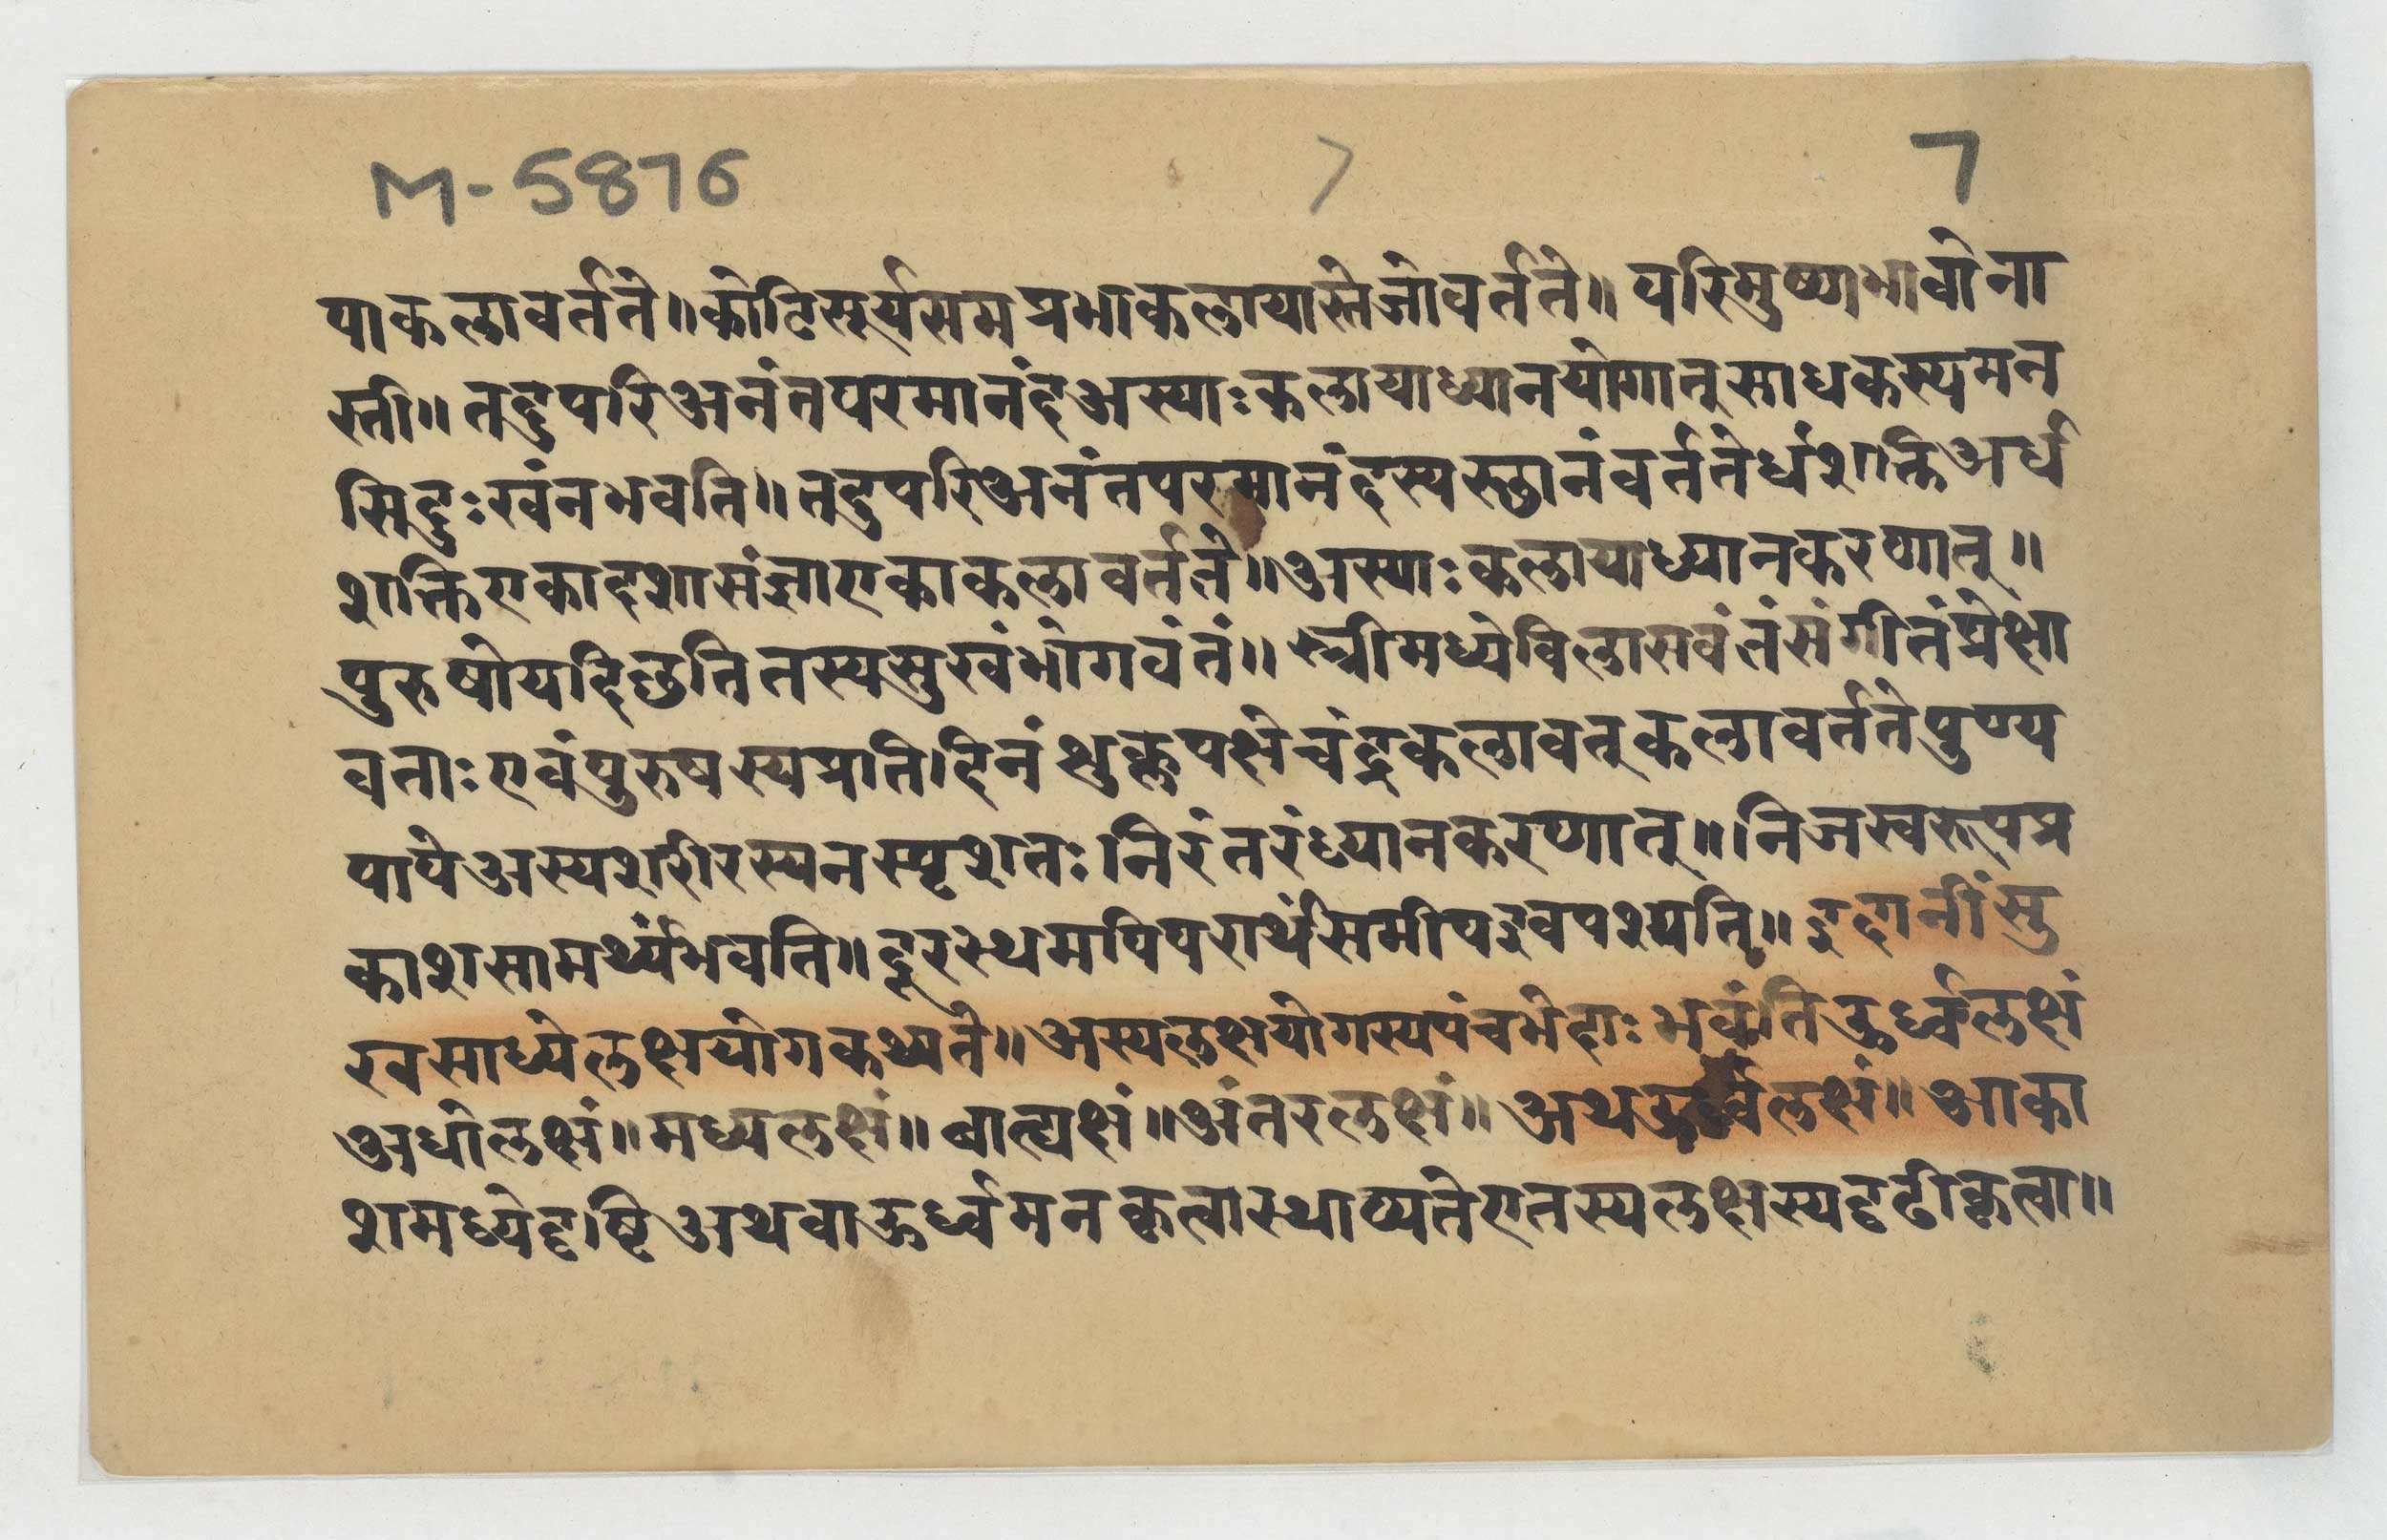 M-5876 7 7
पाकलावर्तते॥कोटिसूर्यसमप्रभाकलायास्तेजोवर्तते॥परिमुष्याभावोना
स्ती॥तदुपरिअनंतपरमानंदअस्याःकलायाध्यानयोगात्साधकस्यमन
सिदुःखंनभवति॥तदुपरिअनंतपरमानंदस्यस्छानंवर्ततेर्धशक्तिअर्ध
शक्तिएकादशासंज्ञाएकाकलावर्तते॥अस्याःकलायाध्यानकरणात्॥
पुरुषोयदिछतितस्यसुखंभोगवंतं॥स्त्रीमध्येविलासवंतंसंगीतंप्रेक्षा
वताःएवंपुरुषस्यप्रातिदिनंशुक्लपक्षेचंद्रकलावत्कलावर्ततेपुण्य
पापेअस्यशरीरस्यनस्पृशतःनिरंतरंध्यानकरणात्॥निजस्वरूपप्र
काशसामर्थ्यंभवति॥दूरस्थमपिपरार्थंसमीपइवपश्यति॥इदानींसु
खसाध्येलक्षयोगकथ्यते॥अस्यलक्षयोगस्यपंचभेदाःभवंतिऊर्ध्वलक्षं
अधोलक्षं॥मध्यलक्षं॥बाह्यक्षं॥अंतरलक्षं॥अथऊर्ध्वलक्षं॥आका
शमध्येदृष्टिअथवाऊर्ध्वमनकृत्वास्थाप्यतेएतस्यलक्षस्यदृढीकृत्वा॥